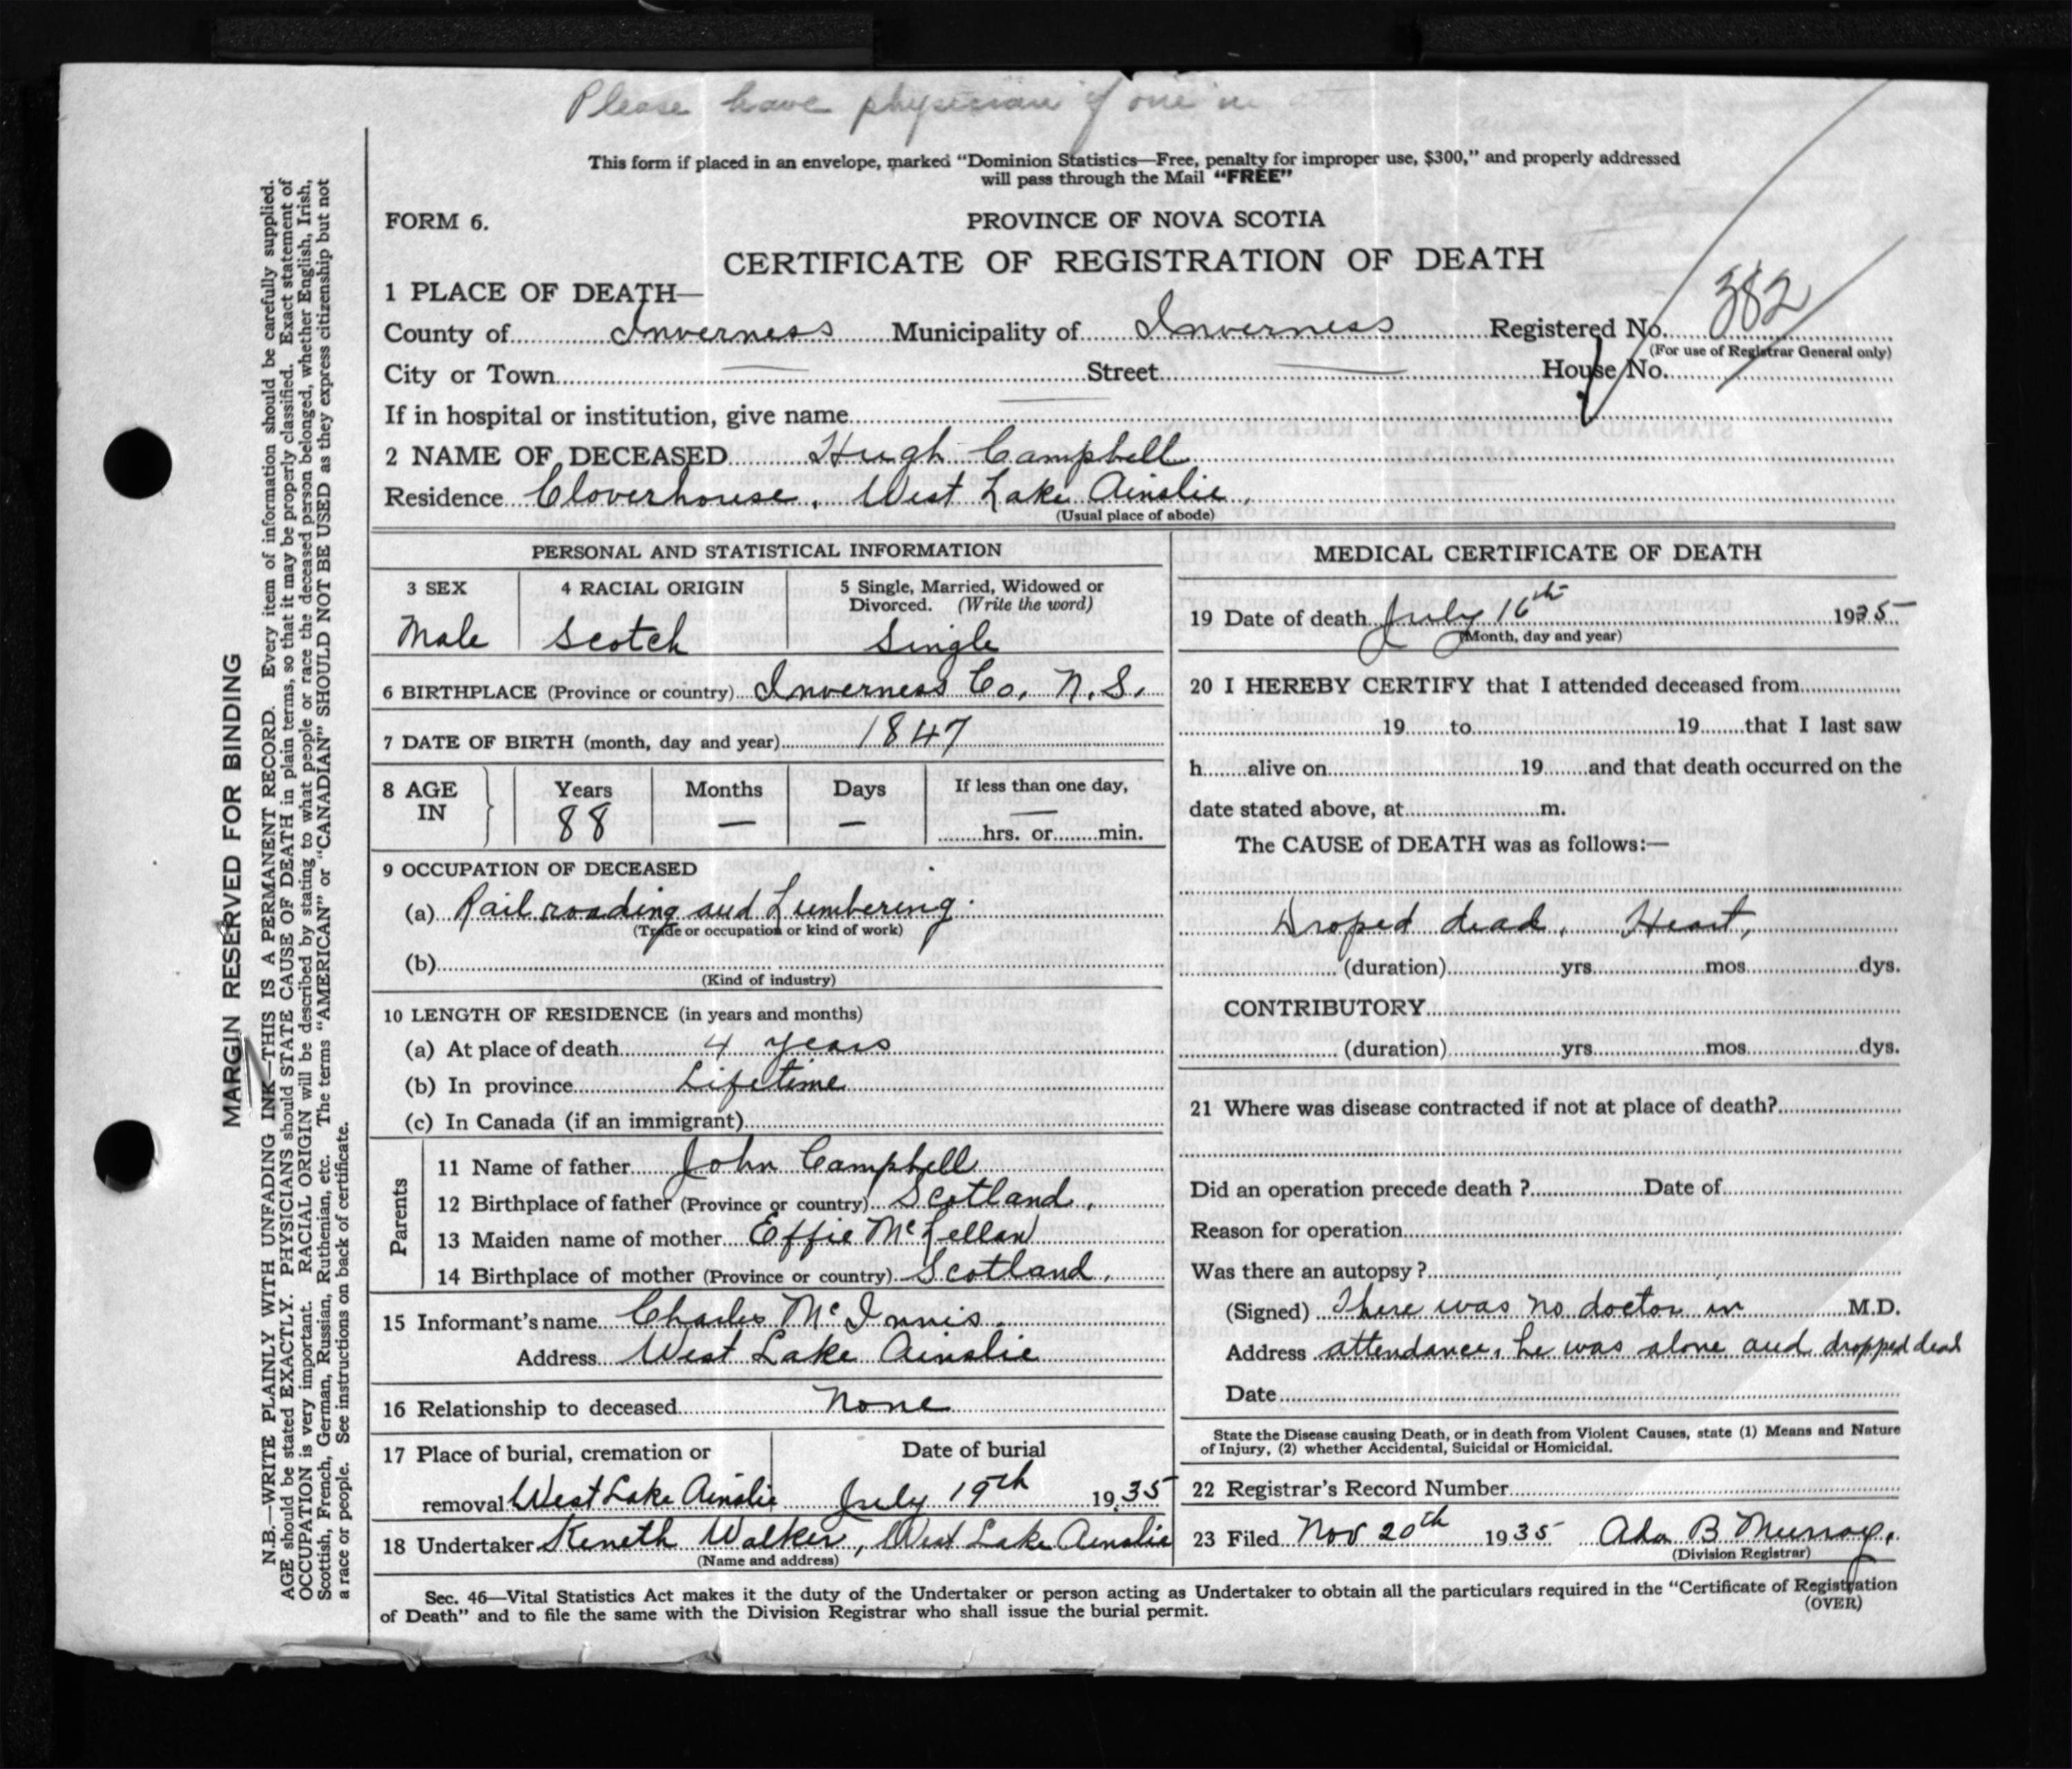 Please have physician if one in
This form if placed in an envelope, marked "Dominion Statistics—Free, penalty for improper use, $300," and properly addressed
will pass through the Mail "FREE"
FORM 6.
PROVINCE OF NOVA SCOTIA
CERTIFICATE OF REGISTRATION OF DEATH
1 PLACE OF DEATH—
County of Inverness Municipality of Inverness Registered No. 382
(For use of Registrar General only)
City or Town — Street — House No.
If in hospital or institution, give name —
2 NAME OF DECEASED Hugh Campbell
Residence Cloverhouse, West Lake Ainslie,
(Usual place of abode)
PERSONAL AND STATISTICAL INFORMATION
3 SEX 4 RACIAL ORIGIN 5 Single, Married, Widowed or
Divorced. (Write the word)
Male Scotch Single
6 BIRTHPLACE (Province or country) Inverness Co. N.S.
7 DATE OF BIRTH (month, day and year) 1847
8 AGE IN Years Months Days If less than one day,
88 — — — hrs. or min.
9 OCCUPATION OF DECEASED
(a) Rail roading and Lumbering.
(Trade or occupation or kind of work)
(b)
(Kind of industry)
10 LENGTH OF RESIDENCE (in years and months)
(a) At place of death 4 years
(b) In province Lifetime
(c) In Canada (if an immigrant)
Parents
11 Name of father John Campbell
12 Birthplace of father (Province or country) Scotland,
13 Maiden name of mother Effie McLellan
14 Birthplace of mother (Province or country) Scotland,
15 Informant's name Charles McInnis.
Address West Lake Ainslie
16 Relationship to deceased None
17 Place of burial, cremation or Date of burial
removal West Lake Ainslie July 19th 1935
18 Undertaker Keneth Walker, West Lake Ainslie
(Name and address)
MEDICAL CERTIFICATE OF DEATH
19 Date of death July 16th 1935
(Month, day and year)
20 I HEREBY CERTIFY that I attended deceased from
19 to 19 that I last saw
h alive on 19 and that death occurred on the
date stated above, at m.
The CAUSE of DEATH was as follows:—
Droped dead. Heart,
(duration) yrs. mos. dys.
CONTRIBUTORY
(duration) yrs. mos. dys.
21 Where was disease contracted if not at place of death?
Did an operation precede death ? Date of
Reason for operation
Was there an autopsy ?
(Signed) There was no doctor in M.D.
Address attendance, he was alone and dropped dead
Date
State the Disease causing Death, or in death from Violent Causes, state (1) Means and Nature
of Injury, (2) whether Accidental, Suicidal or Homicidal.
22 Registrar's Record Number
23 Filed Nov 20th 1935 Ada B Murray,
(Division Registrar)
Sec. 46—Vital Statistics Act makes it the duty of the Undertaker or person acting as Undertaker to obtain all the particulars required in the "Certificate of Registration
of Death" and to file the same with the Division Registrar who shall issue the burial permit.
(OVER)
MARGIN RESERVED FOR BINDING
N.B.—WRITE PLAINLY WITH UNFADING INK—THIS IS A PERMANENT RECORD. Every item of information should be carefully supplied.
AGE should be stated EXACTLY. PHYSICIANS should STATE CAUSE OF DEATH in plain terms, so that it may be properly classified. Exact statement of
OCCUPATION is very important. RACIAL ORIGIN will be described by stating to what people or race the deceased person belonged, whether English, Irish,
Scottish, French, German, Russian, Ruthenian, etc. The terms "AMERICAN" or "CANADIAN" SHOULD NOT BE USED as they express citizenship but not
a race or people. See instructions on back of certificate.